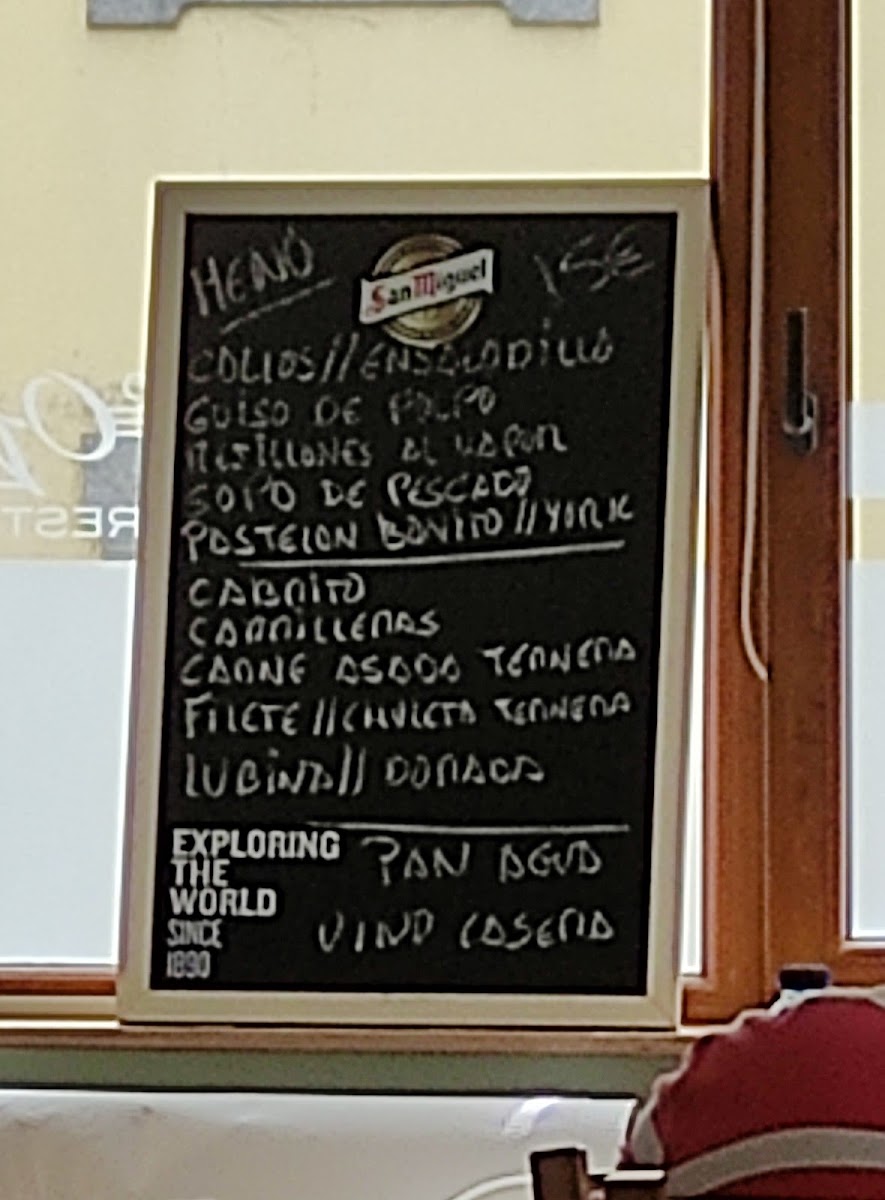 MENÚ
San Miguel
15€
CALLOS//ENSALADILLA
GUISO DE POLPO
MEJILLONES AL VAPOR
SOPA DE PESCADO
PASTELON BONITO//YORK
CABRITO
CARRILLERAS
CARNE ASADA TERNERA
FILETE//CHULETA TERNERA
LUBINA//DORADA
EXPLORING
THE
WORLD
SINCE
1890
PAN AGUA
VINO CASERA
REST